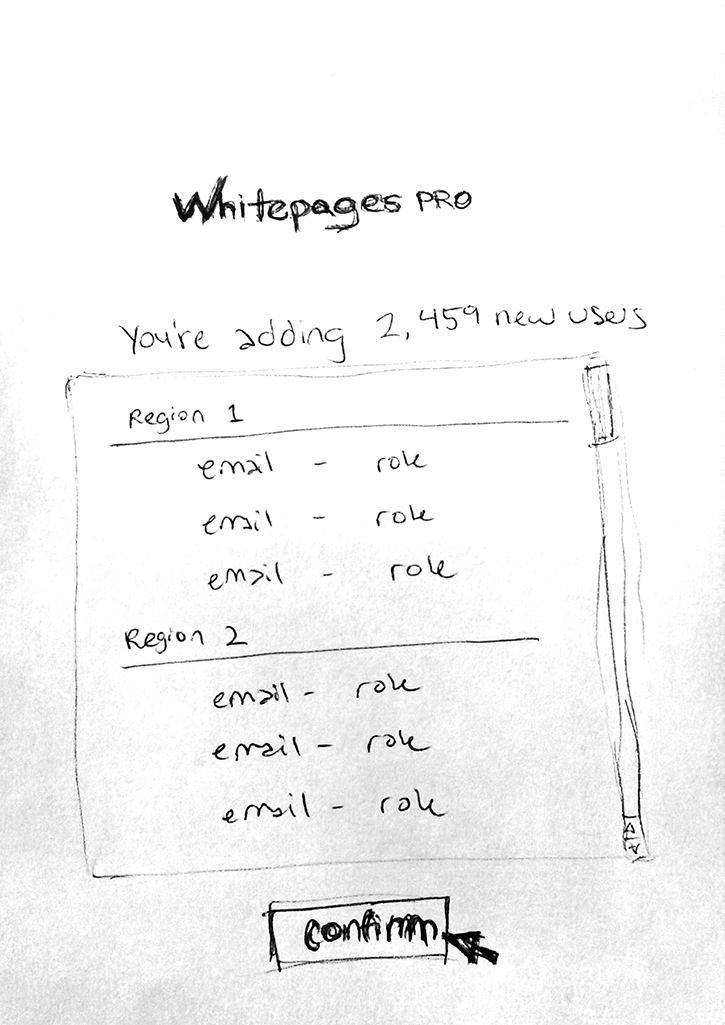 Whitepages PRO
You're adding 2,459 new users
Region 1
email - role
email - role
email - role
Region 2
email - role
email - role
email - role
confirm